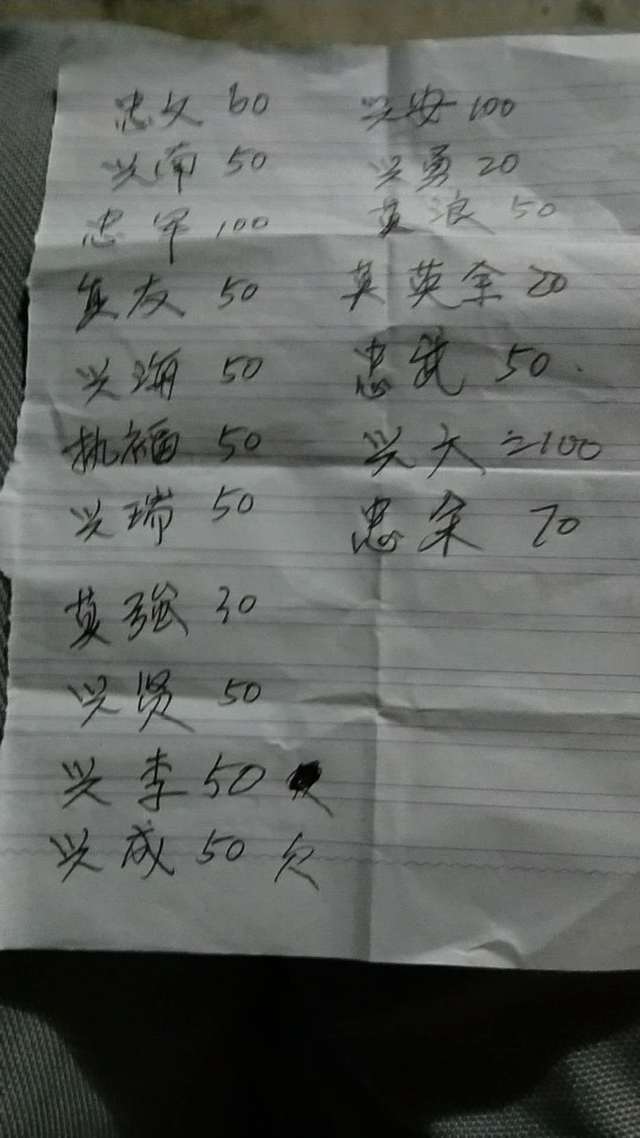 忠文 60 兴安 100
兴南 50 兴勇 20
忠军 100 浪 50
友 50 英余 20
兴海 50 忠 50
执福 50 兴大 100
兴瑞 50 忠余 70
强 30
兴贤 50
兴李 50
兴成 50 欠